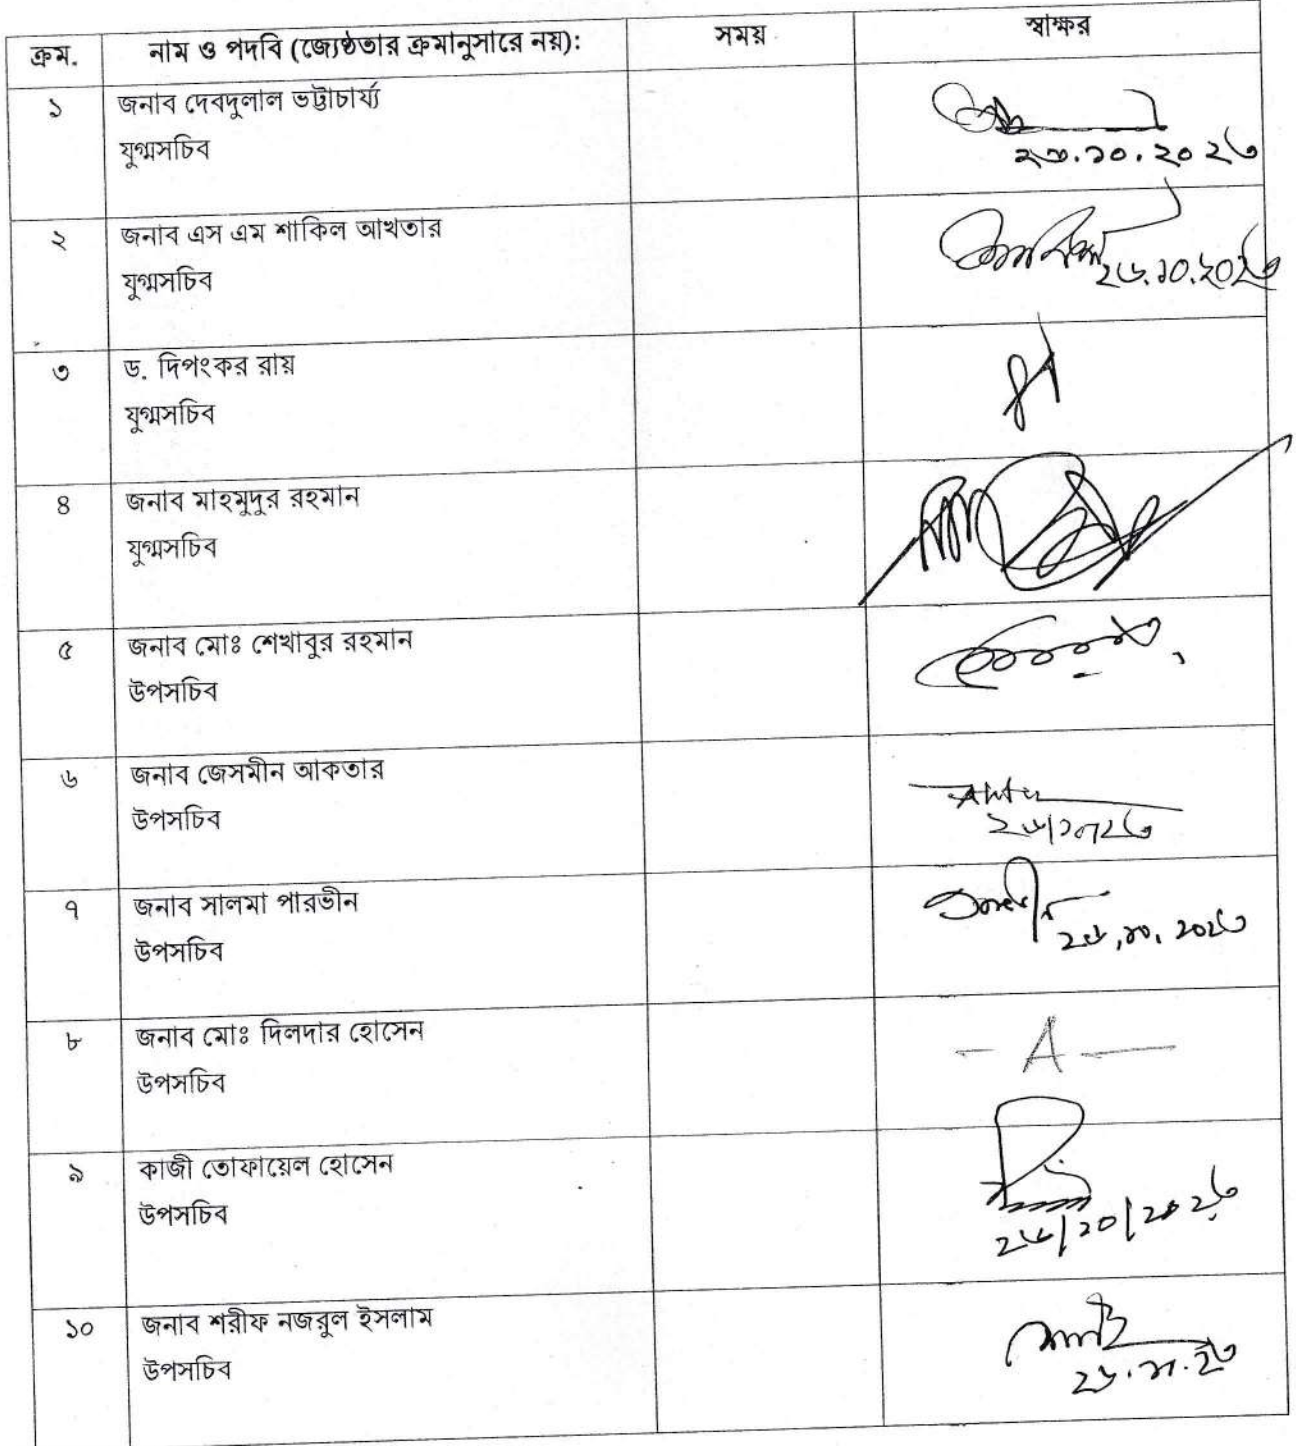 ক্রম. নাম ও পদবি (জ্যেষ্ঠতার ক্রমানুসারে নয়): সময় স্বাক্ষর
১ জনাব দেবদুলাল ভট্টাচার্য্য
যুগ্মসচিব
২ জনাব এস এম শাকিল আখতার
যুগ্মসচিব
৩ ড. দিপংকর রায়
যুগ্মসচিব
৪ জনাব মাহমুদুর রহমান
যুগ্মসচিব
৫ জনাব মোঃ শেখাবুর রহমান
উপসচিব
৬ জনাব জেসমীন আকতার
উপসচিব
৭ জনাব সালমা পারভীন
উপসচিব
৮ জনাব মোঃ দিলদার হোসেন - A -
উপসচিব
৯ কাজী তোফায়েল হোসেন
উপসচিব
১০ জনাব শরীফ নজরুল ইসলাম
উপসচিব